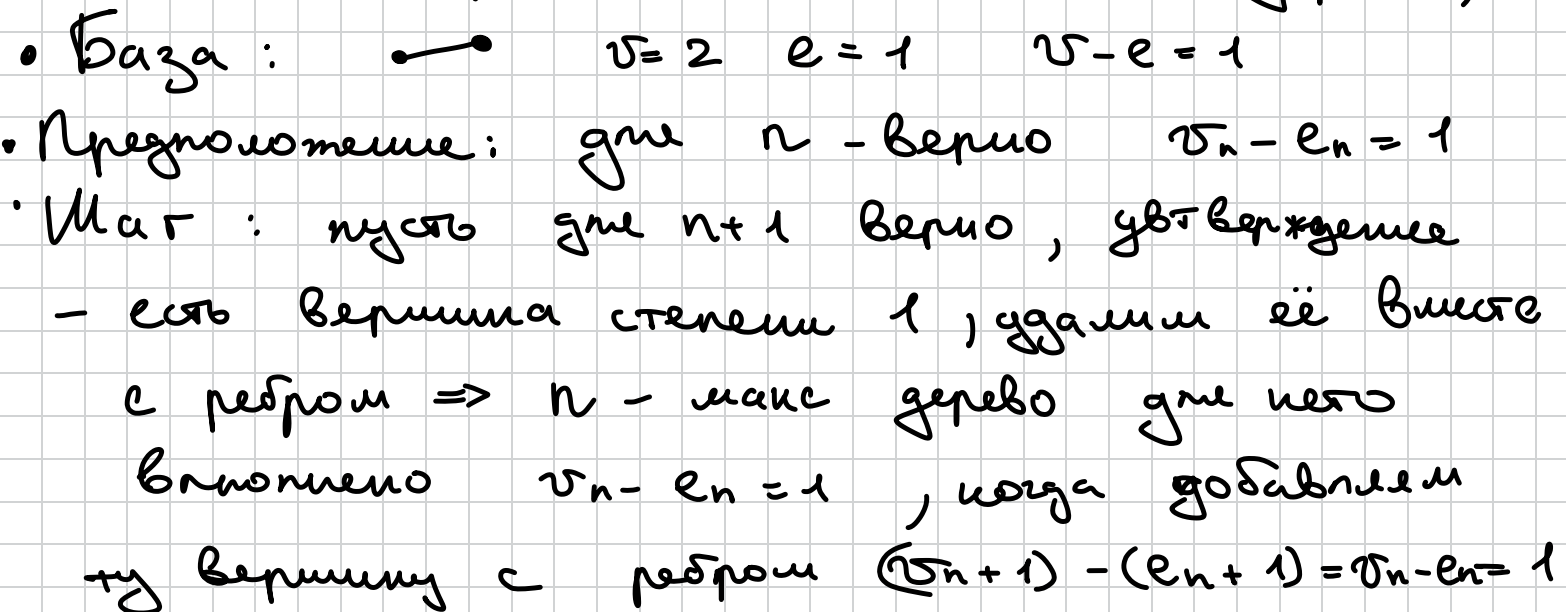 • База : v = 2 e = 1 v - e = 1
• Предположение: для n - верно vₙ - eₙ = 1
• Шаг : пусть для n+1 верно, увтверждение
- есть вершина степени 1, удалим её вместе
с ребром => n - макс дерево для него
выполнено vₙ - eₙ = 1, когда добавляем
ту вершину с ребром (vₙ + 1) - (eₙ + 1) = vₙ - eₙ = 1